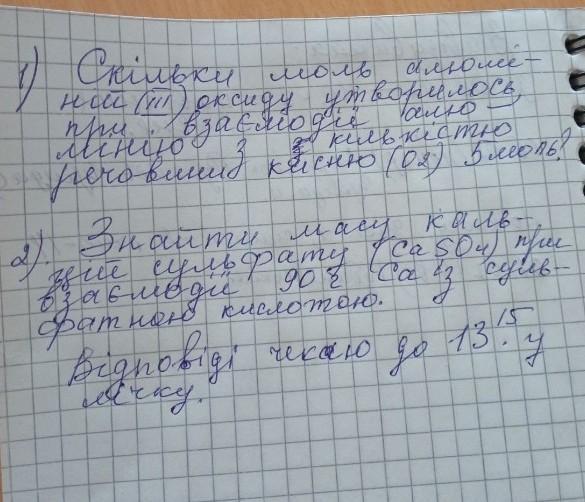 1) Скільки моль алюмі-
ній (III) оксиду утворилось
при взаємодії алю-
мінію з кількістю
речовини кисню (O2) 5 моль?
2). Знайти масу каль-
цій сульфату (CaSO4) при
взаємодії 90 г Ca із суль-
фатною кислотою.
Відповіді чекаю до 13.15 у
лічку.